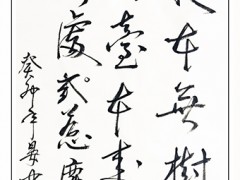 本無樹
臺本來
處惹塵
癸卯年夏